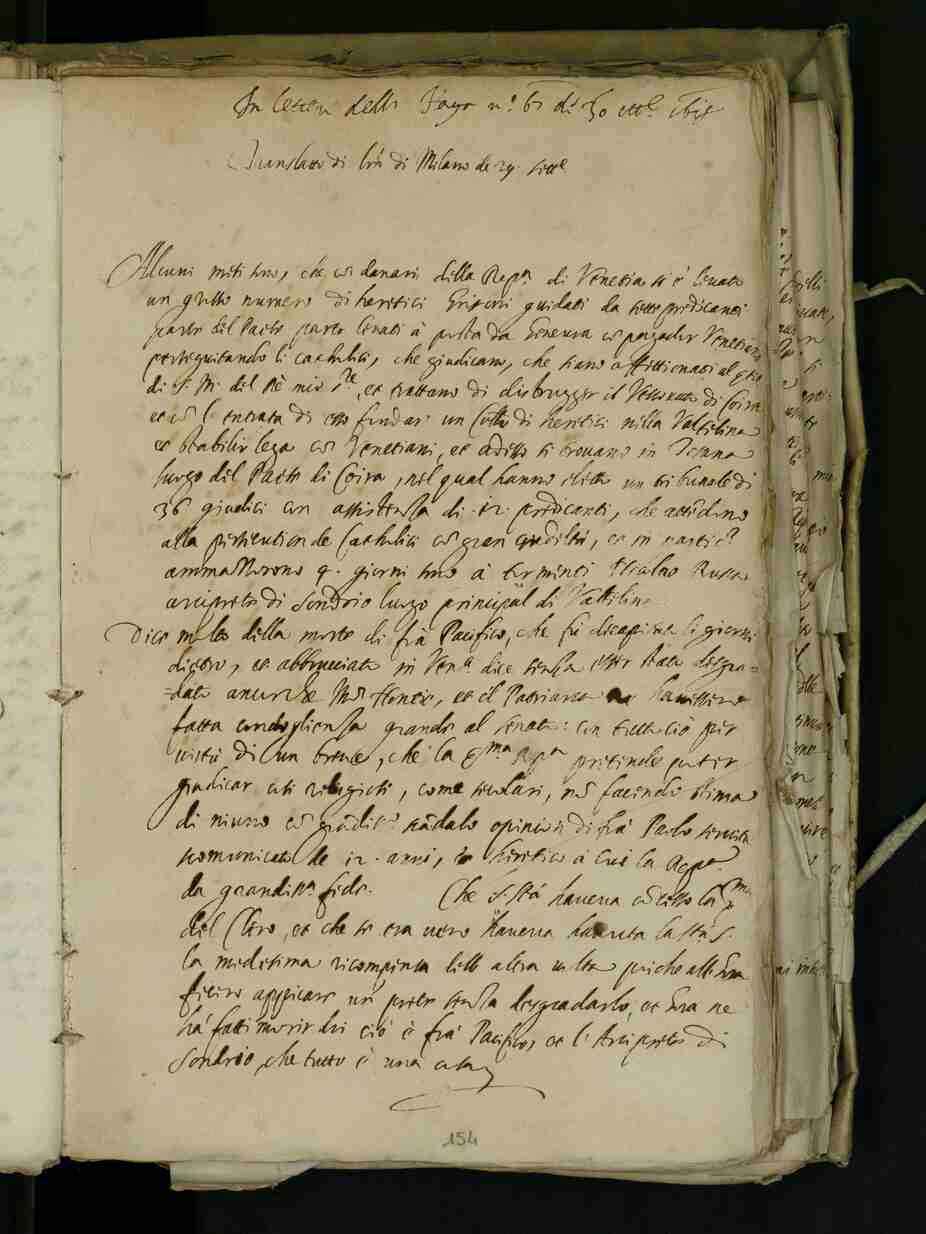 In lettere dell' Haya n.° 61 di 30 ott.e 1618
Translato di l.re di Milano de 29 sett.e
Alcuni mesi sono, che co' danari della Rep.a di Venetia si è levato
un grosso numero di heretici Grisoni guidati da sette predicanti
parte del Paese parte levati à posta da Genevra co' pagador Venetiano
perseguitando li catholici, che giudicano, che siano affettionati al
di S. M. del Rè mio S.re, et trattano di distrugger il Vescovato di Coira
et co' l'entrata di esso fundar un Collo di heretici nella Valtelina
et stabilir lega co' Venetiani, et adesso si trovano in Tosana
luogo del Paese di Coira, nel qual hanno eletto un tribunale di
36 giudici con assistenza di 12 predicanti, che attendono
alla persecution de Catholici co' gran crudeltà, et in partic.r
ammazzorono 4. giorni sono à tormenti Nicolao Rusca
arciprete di Sondrio luogo principal di Valtelina
Dice molto della morte di frà Pacifico, che fù decapitato li giorni
dietro, et abbruciato in Ven.a dice senza esser stato desgra=
=dato ancorche Mons.r Nontio, et il Patriarca ne havessero
fatta condoglienza grande al senato: con tutto ciò per
virtù di un breve, che la Ser.ma Rep.a pretende poter
giudicar cosi religiosi, come secolari, nò facendo stima
di niuno co' grandiss.o scàdalo opinion di frà Paolo servita
scomunicato de 12. anni, et heretico à cui la Rep.a
da grandiss.a fede. Che S. Stà haveva còcesso la X.ma
del Clero, et che se era vero haveva havuta la Stà S.
la medesima ricompensa dell' altra volta poiche all' hora
fecero appiccare un prete senza desgradarlo, et hora ne
hà fatti morir dui ciò è frà Pacifico, et l'Arciprete di
Sondrio, che tutto è una cosa
154